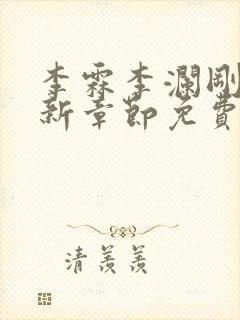 李霖李瀾剛
新章節免費
清羨羨